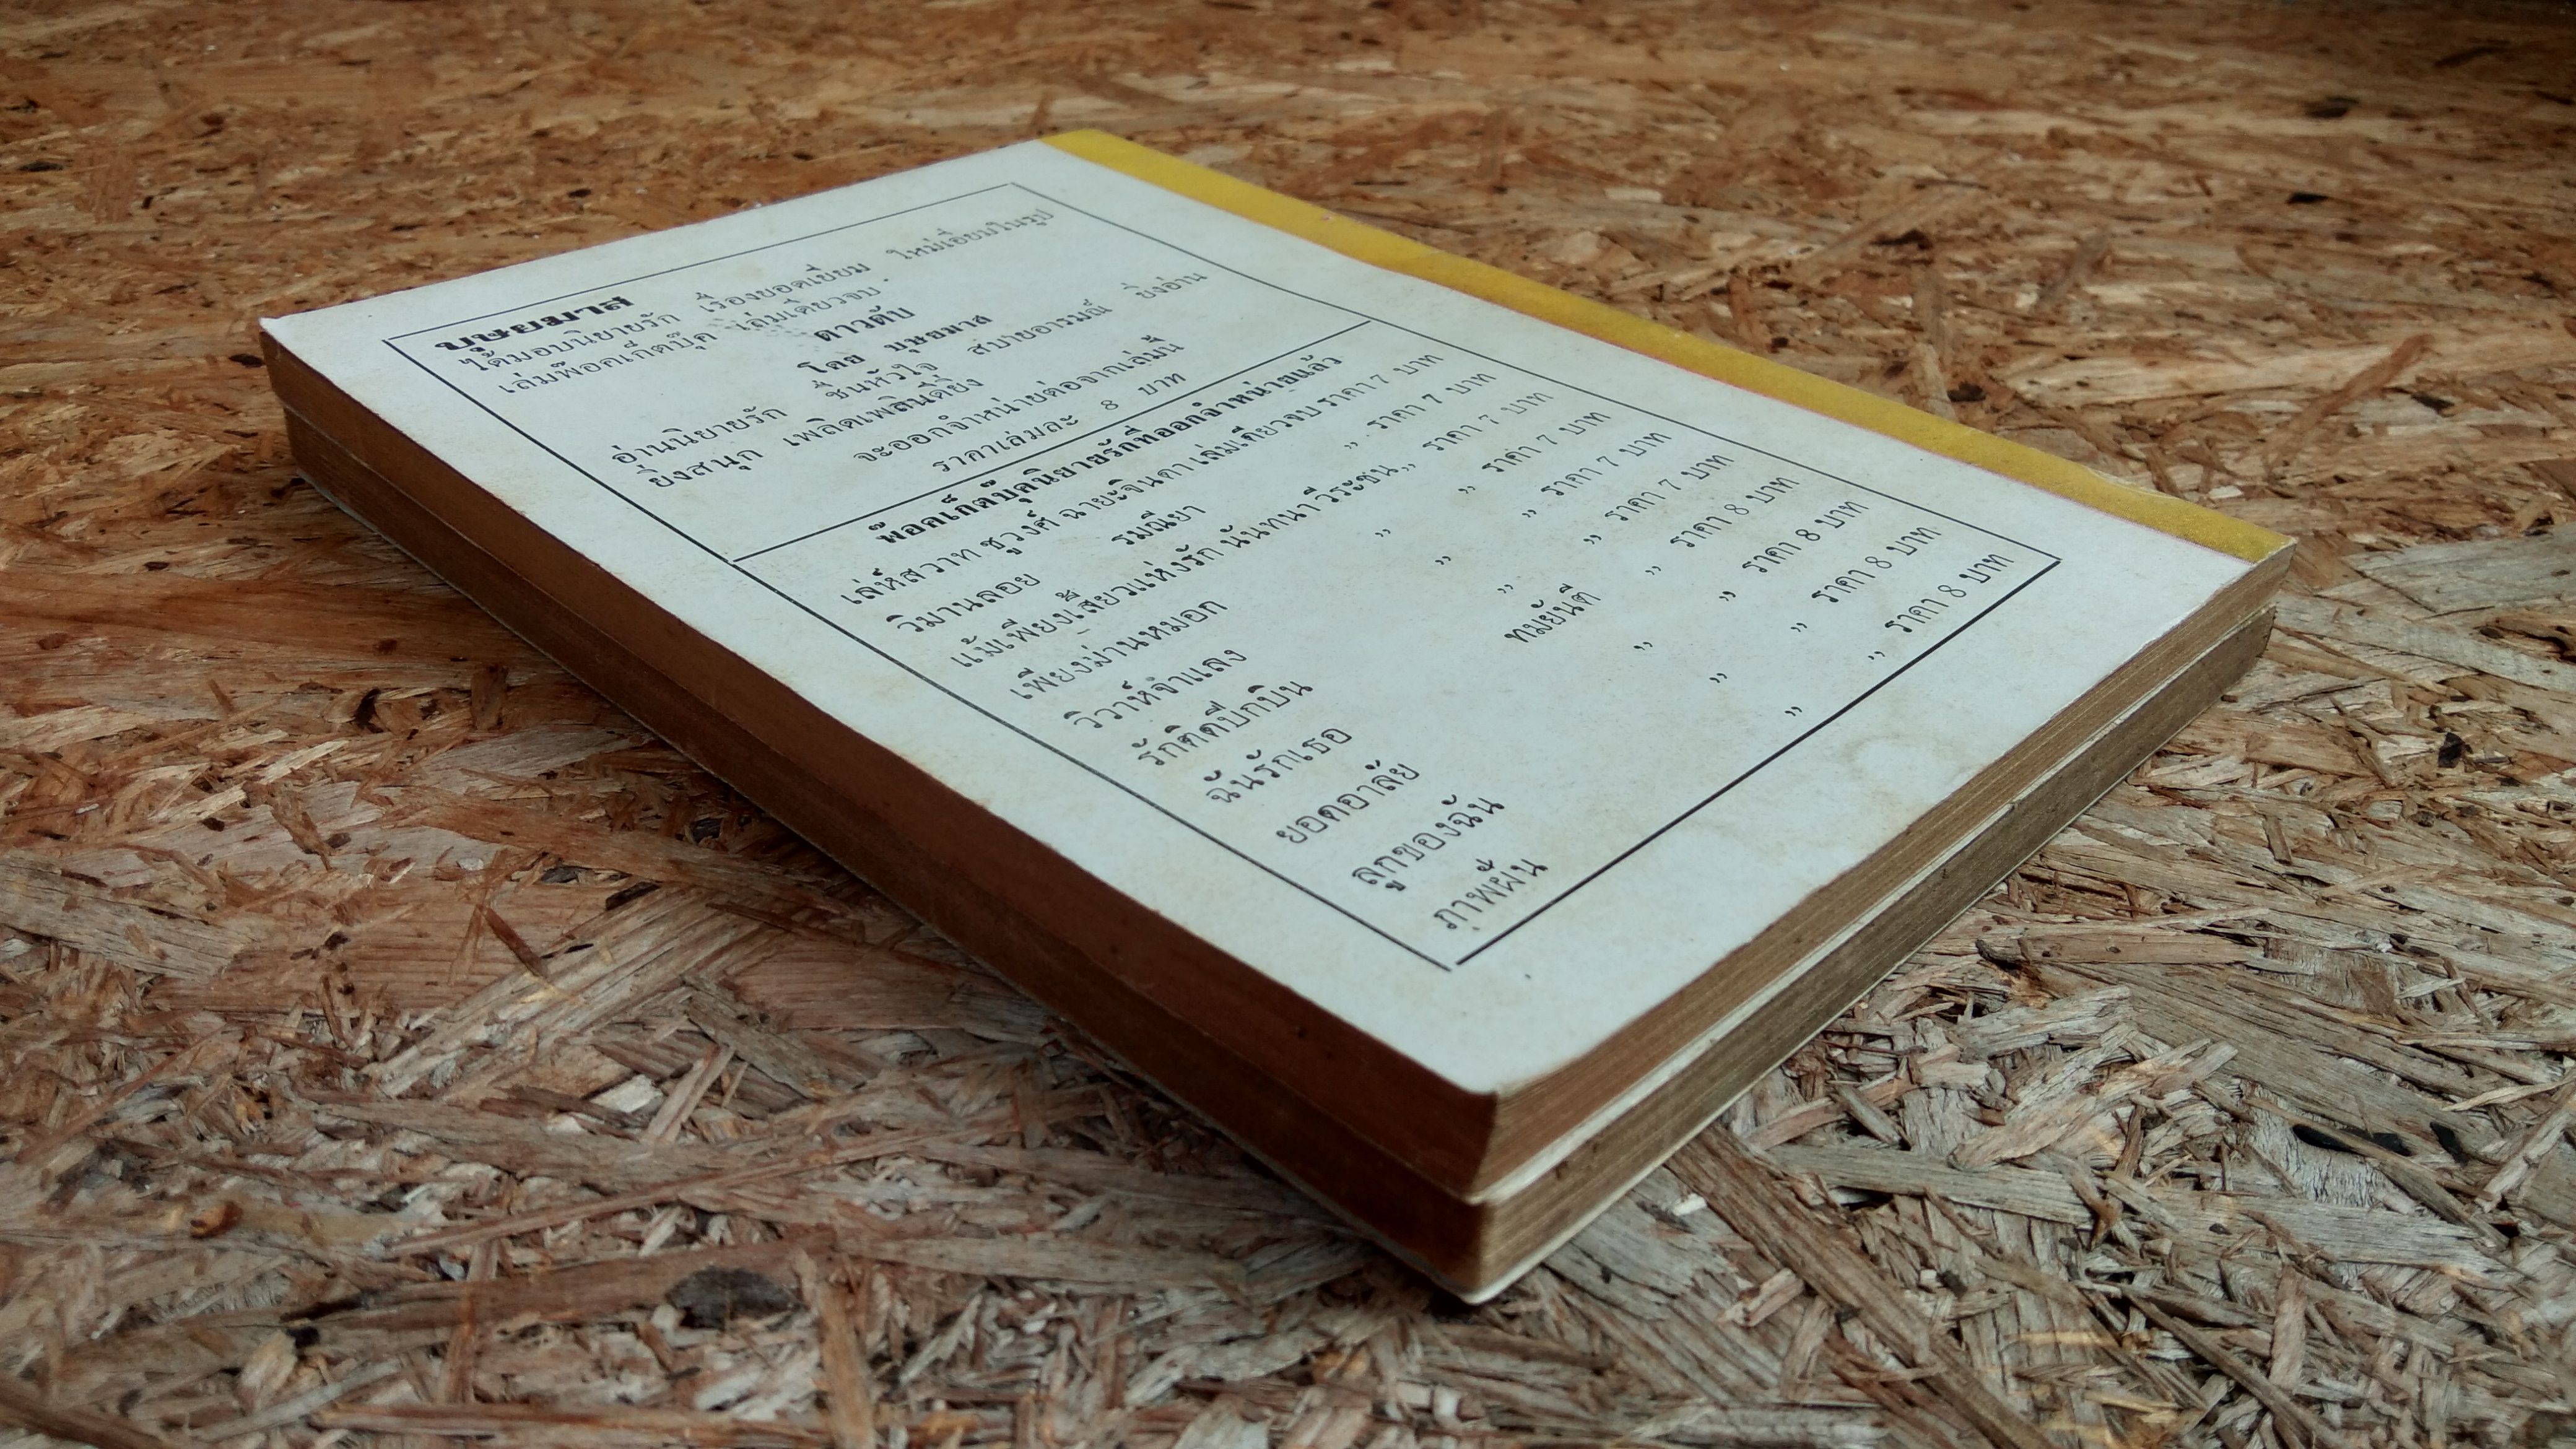 บุษยมาส
ได้มอบนิยายรัก เรื่องยอดเยี่ยม ใหม่เอี่ยมในรูป
เล่มพ๊อคเก็ตบุ๊ค เล่มเดียวจบ
ดาวดับ
โดย บุษยมาส
อ่านนิยายรัก ชื่นหัวใจ สบายอารมณ์ ยิ่งอ่าน
ยิ่งสนุก เพลิดเพลินดียิ่ง
จะออกจำหน่ายต่อจากเล่มนี้
ราคาเล่มละ 8 บาท
พ๊อคเก็ตบุ๊คนิยายรักที่ออกจำหน่ายแล้ว
เล่ห์สวาท ชูวงศ์ ฉายะจินดา เล่มเดียวจบ ราคา 7 บาท
วิมานลอย รมณียา ,, ราคา 7 บาท
แม้เพียงเสี้ยวแห่งรัก นันทนา วีระชน ,, ราคา 7 บาท
เพียงม่านหมอก ,, ,, ราคา 7 บาท
วิวาห์จำแลง ,, ,, ราคา 7 บาท
รักติดปีกบิน ,, ,, ราคา 7 บาท
ฉันรักเธอ ทมยันตี ,, ราคา 8 บาท
ยอดอาลัย ,, ,, ราคา 8 บาท
ลูกของฉัน ,, ,, ราคา 8 บาท
ภาพฝัน ,, ,, ราคา 8 บาท